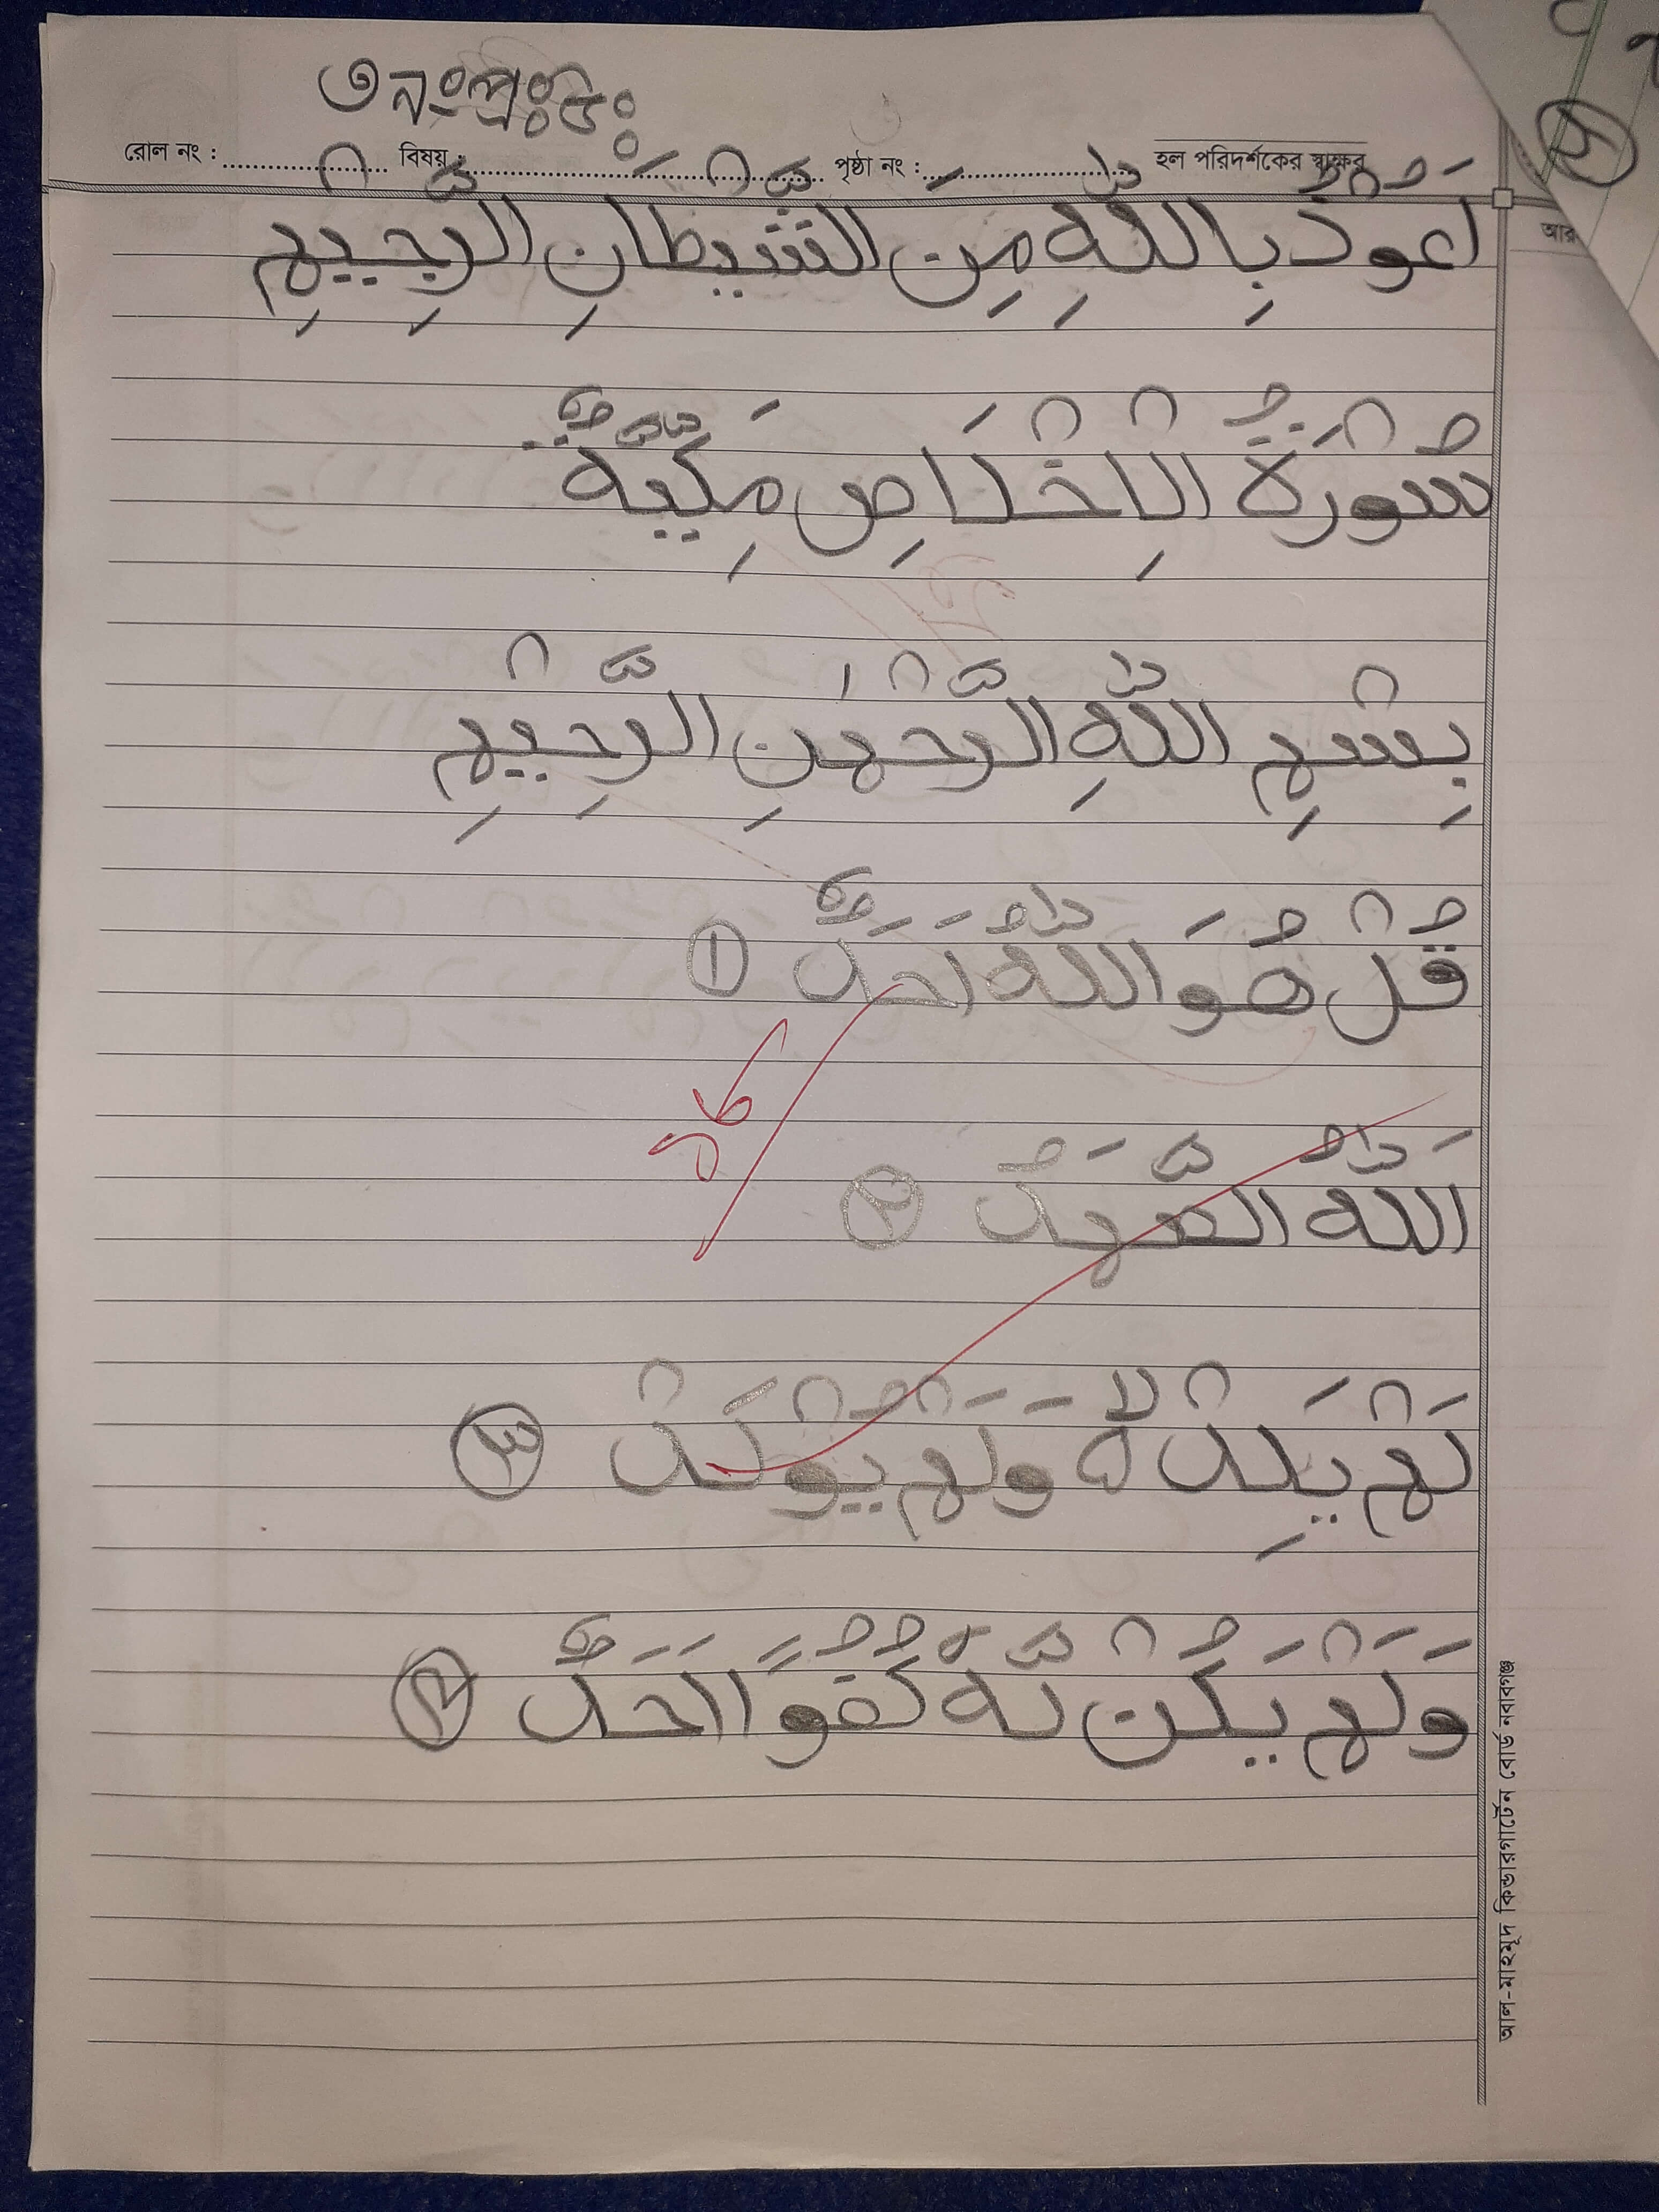 ৩ নং প্রঃ উঃ
রোল নং : বিষয় : পৃষ্ঠা নং : হল পরিদর্শকের স্বাক্ষর
اَعُوْذُ بِاللّٰهِ مِنَ الشَّيْطَانِ الرَّجِيْمِ
سُوْرَةُ الْاِخْلَاصِ مَكِّيَّةٌ
بِسْمِ اللّٰهِ الرَّحْمٰنِ الرَّحِيْمِ
قُلْ هُوَ اللّٰهُ اَحَدٌ ①
اَللّٰهُ الصَّمَدُ ②
لَمْ يَلِدْ ۙ وَلَمْ يُوْلَدْ ③
وَلَمْ يَكُنْ لَّهٗ كُفُوًا اَحَدٌ
আল-মাহমুদ কিন্ডারগার্টেন বোর্ড নবাবগঞ্জ